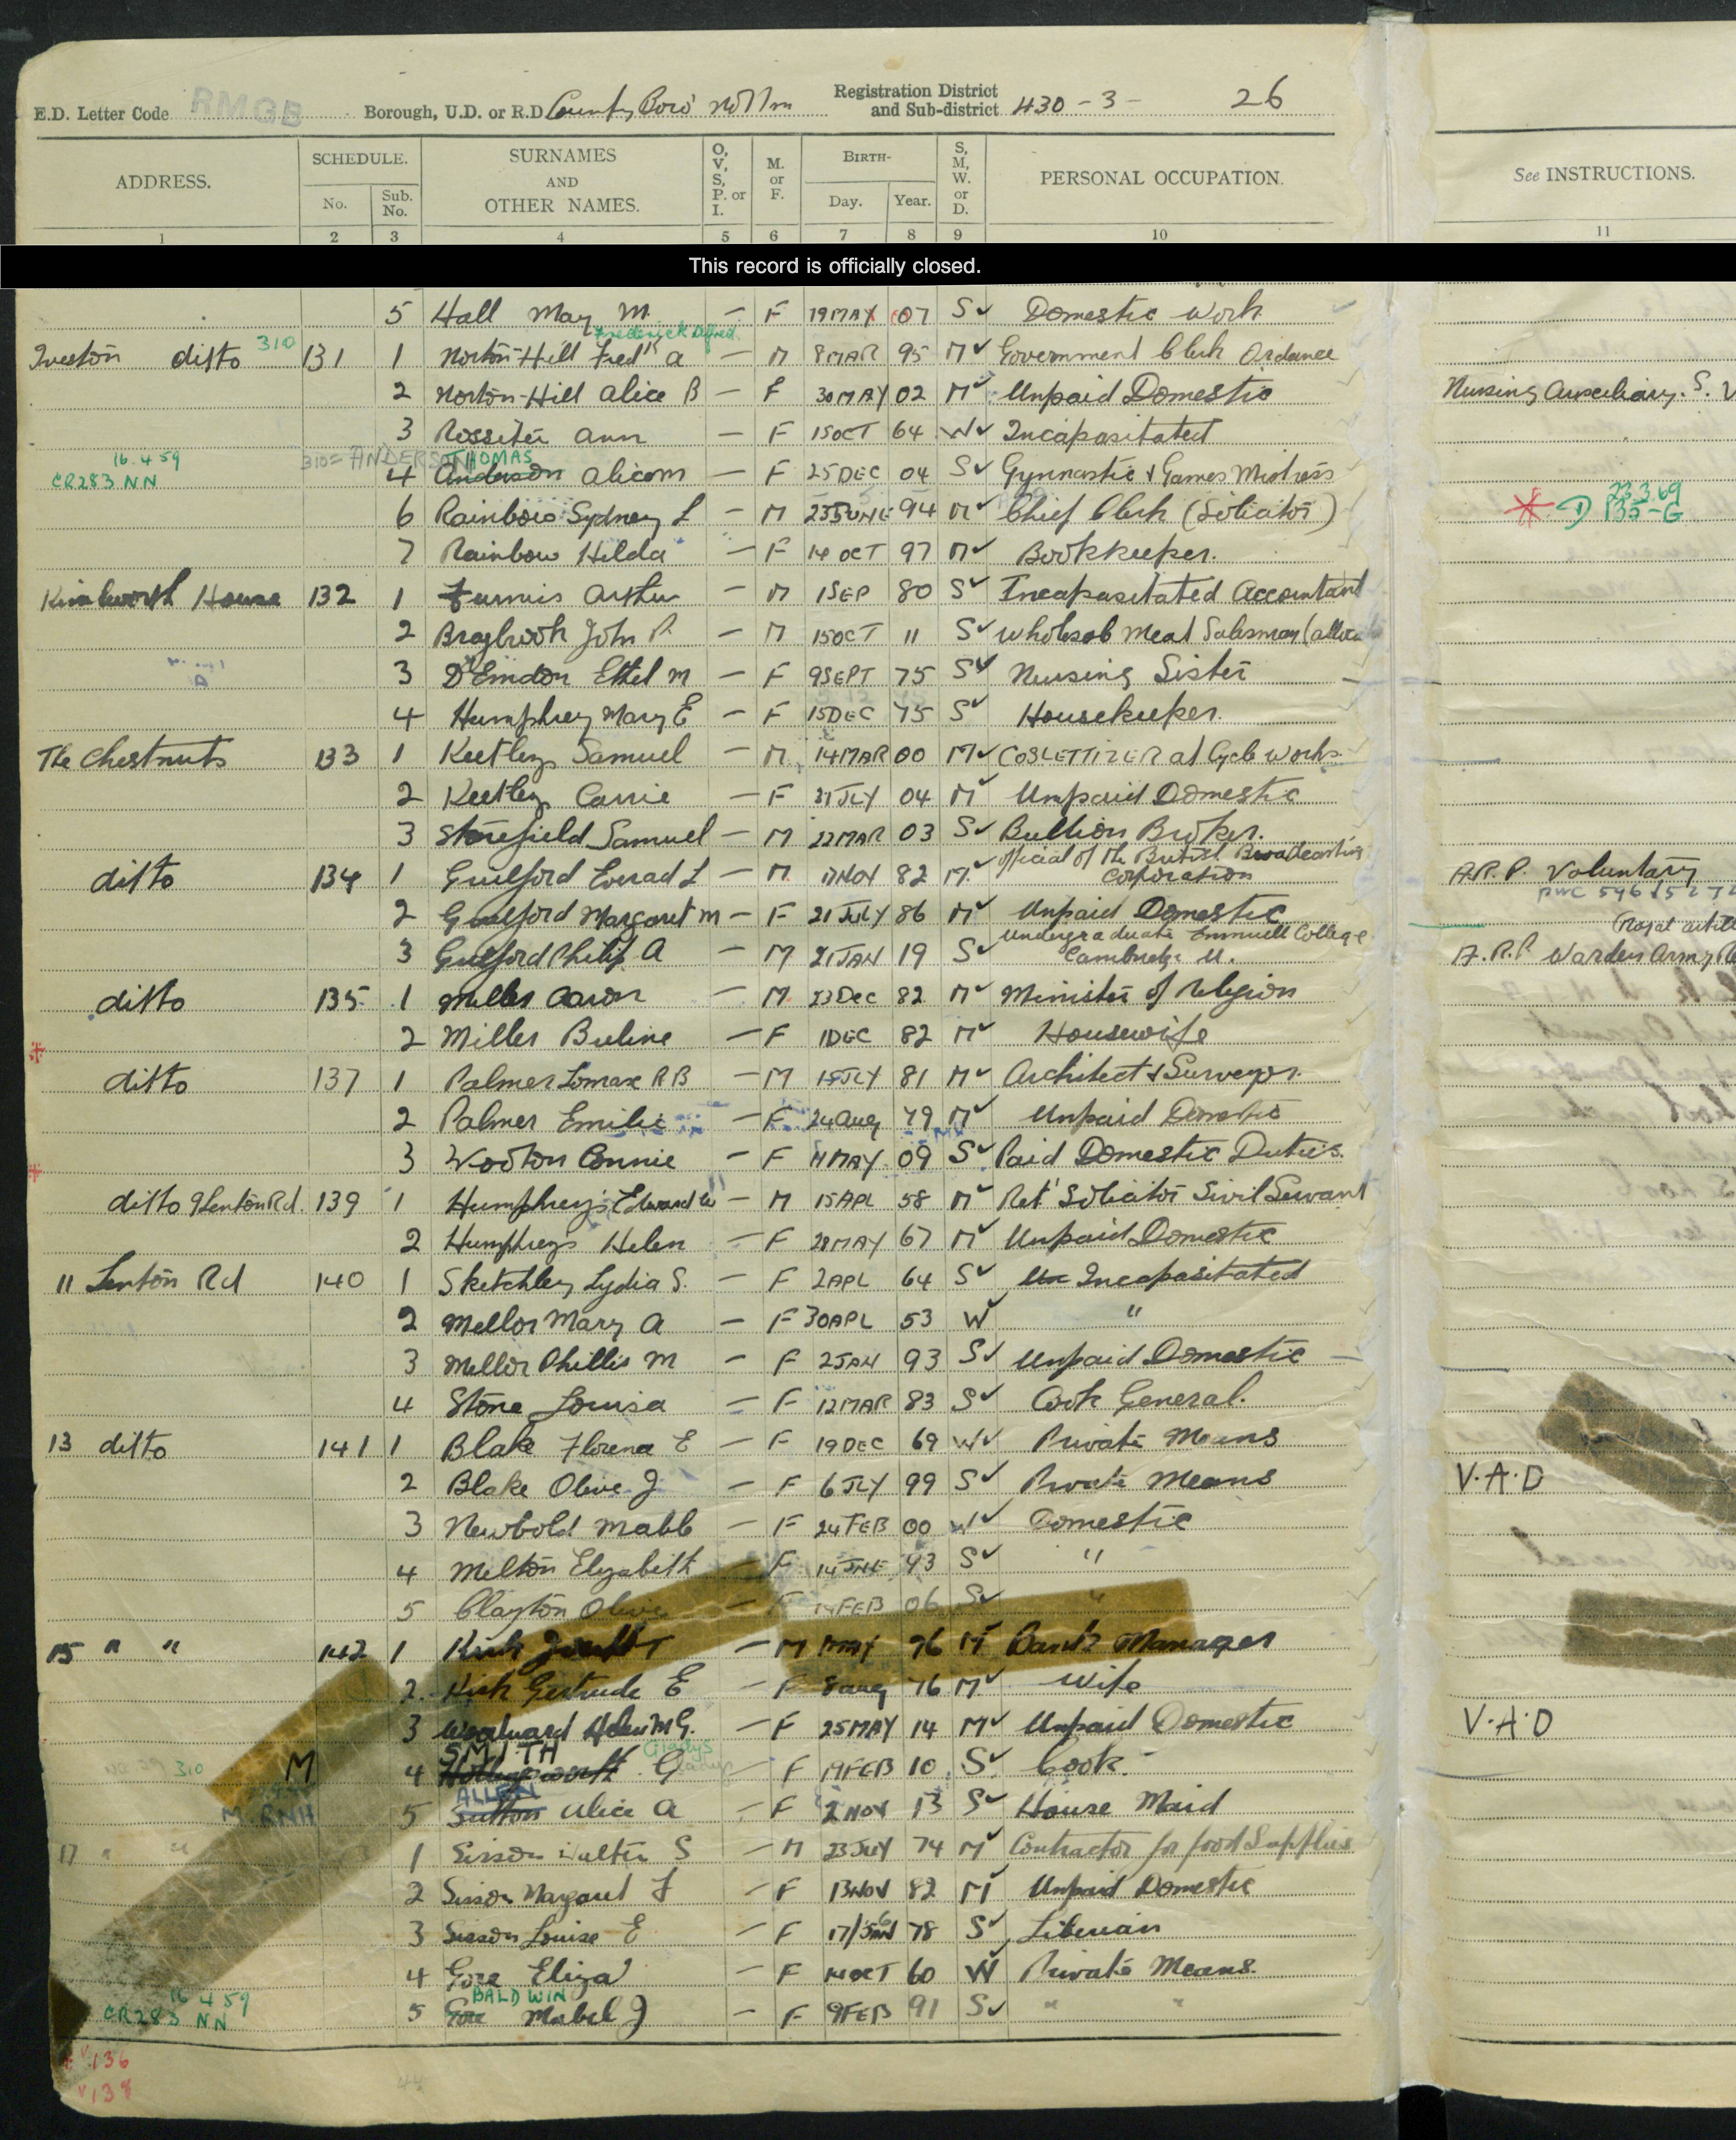 E.D. Letter Code RMGB Borough, U.D. or R.D. County Boro' Nottm Registration District and Sub-district 430-3- 26
ADDRESS. SCHEDULE. No. Sub. No. SURNAMES AND OTHER NAMES. O, V, S, P. or I. M. or F. BIRTH- Day. Year. S, M, W. or D. PERSONAL OCCUPATION. See INSTRUCTIONS.
1 2 3 4 5 6 7 8 9 10 11
This record is officially closed.
5 Hall May M. – F 19 MAY 07 S Domestic Work
Frederick Alfred
ditto 310 131 1 Norton-Hill Fredk A – M 8 MAR 95 M Government Clerk Ordance
2 Norton-Hill Alice B – F 30 MAY 02 M Unpaid Domestic Nursing Auxiliary. S.
3 Rossiter Ann – F 15 OCT 64 W Incapasitated
16.4.59 310= ANDERSON THOMAS
CR283 NN 4 Anderson Alice M – F 25 DEC 04 S Gymnastic & Games Mistress
23.3.69
6 Rainbow Sydney L – M 23 JUNE 94 M Chief Clerk (Solicitor) D 135-G
7 Rainbow Hilda – F 14 OCT 97 M Bookkeeper.
House 132 1 Furnis Arthur – M 1 SEP 80 S Incapasitated Accountant
2 Braybrook John P. – M 15 OCT 11 S Wholesale Meat Salesman
3 D'Emdon Ethel M – F 9 SEPT 75 S Nursing Sister
4 Humphrey Mary E – F 15 DEC 75 S Housekeeper.
The Chestnuts 133 1 Keetley Samuel – M 14 MAR 00 M COSLETTIZER at Cycle Works
2 Keetley Carrie – F 31 JLY 04 M Unpaid Domestic
3 Stonefield Samuel – M 22 MAR 03 S Bullion Broker.
official of the British Broadcasting
ditto 134 1 Guilford Everad L – M 17 NOV 82 M Corporation A.R.P. Voluntary
2 Guilford Margaret M – F 21 JULY 86 M Unpaid Domestic
Undergraduate Emmuell College
3 Guilford Philip A M 21 JAN 19 S Cambridge U. A.R.P Warden Army
ditto 135 1 Miller Aaron – M 23 Dec 82 M Minister of Religion
2 Miller Buline – F 1 DEC 82 M Housewife
ditto 137 1 Palmer Lomax R B – M 15 JLY 81 M Architect & Surveyor.
2 Palmer Emilie – F 24 Aug 79 M Unpaid Domestic
3 Wooton Connie – F 11 MAY 09 S Paid Domestic Duties.
ditto 9 Lenton Rd. 139 1 Humphreys Edward W – M 15 APL 58 M Ret' Solicitor Sivil Servant
2 Humphreys Helen – F 28 MAY 67 M Unpaid Domestic
11 Lenton Rd 140 1 Sketchley Lydia S. – F 2 APL 64 S Un Incapasitated
2 Mellor Mary A – F 30 APL 53 W "
3 Mellor Phillis M – F 2 JAN 93 S Unpaid Domestic
4 Stone Louisa – F 12 MAR 83 S Cook General.
13 ditto 141 1 Blake Florence E – F 19 DEC 69 W Private Means
2 Blake Olive J – F 6 JLY 99 S Private Means V.A.D
3 Newbold Mabb – F 24 FEB 00 W Domestic
4 Melton Elizabeth – F 14 JNE 93 S "
5 Clayton Olive – F 14 FEB 06 S "
15 " " 142 1 Kirk – M MAY 76 M Bank Manager
2 Kirk Gertrude E – F 8 Aug 76 M Wife
3 Woodward Helen M G. – F 25 MAY 14 M Unpaid Domestic V.A.D
SMITH Gladys
310 M 4 Hollingsworth G – F 19 FEB 10 S Cook.
ALLEN
M. RNH 5 Sutton Alice A – F 2 NOV 13 S House Maid
17 " " 1 Sisson Walter S – M 23 JULY 74 M Contractor for food Supplies
2 Sisson Margaret F – F 13 NOV 82 M Unpaid Domestic
3 Sisson Louise E – F 17 78 S Liberian
4 Gore Eliza – F 14 OCT 60 W Private Means.
16 4 59 BALDWIN
CR283 NN 5 Gore Mabel J – F 9 FEB 91 S " "
v 136
v 138